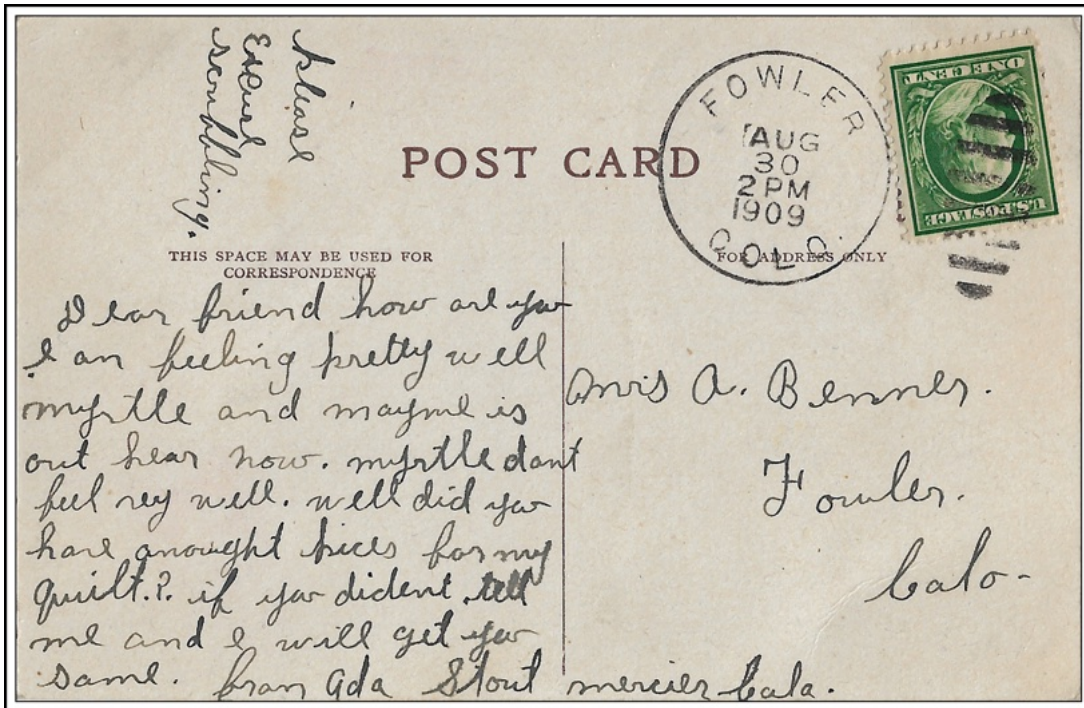 Please
Excuse
scoubbling.
POST CARD
FOWLER
AUG
30
2 PM
1909
COLO.
ONE CENT
U.S. POSTAGE
THIS SPACE MAY BE USED FOR
CORRESPONDENCE
FOR ADDRESS ONLY
Dear friend how are you
I am feeling pretty well
myrtle and mayme is
out hear now. myrtle dont
feel rey well. well did you
have anought pices for my
quilt.?. if you dident tell
me and I will get you
same. from Ada Stout mercier Colo.
A. Benner.
Fowler.
Colo-